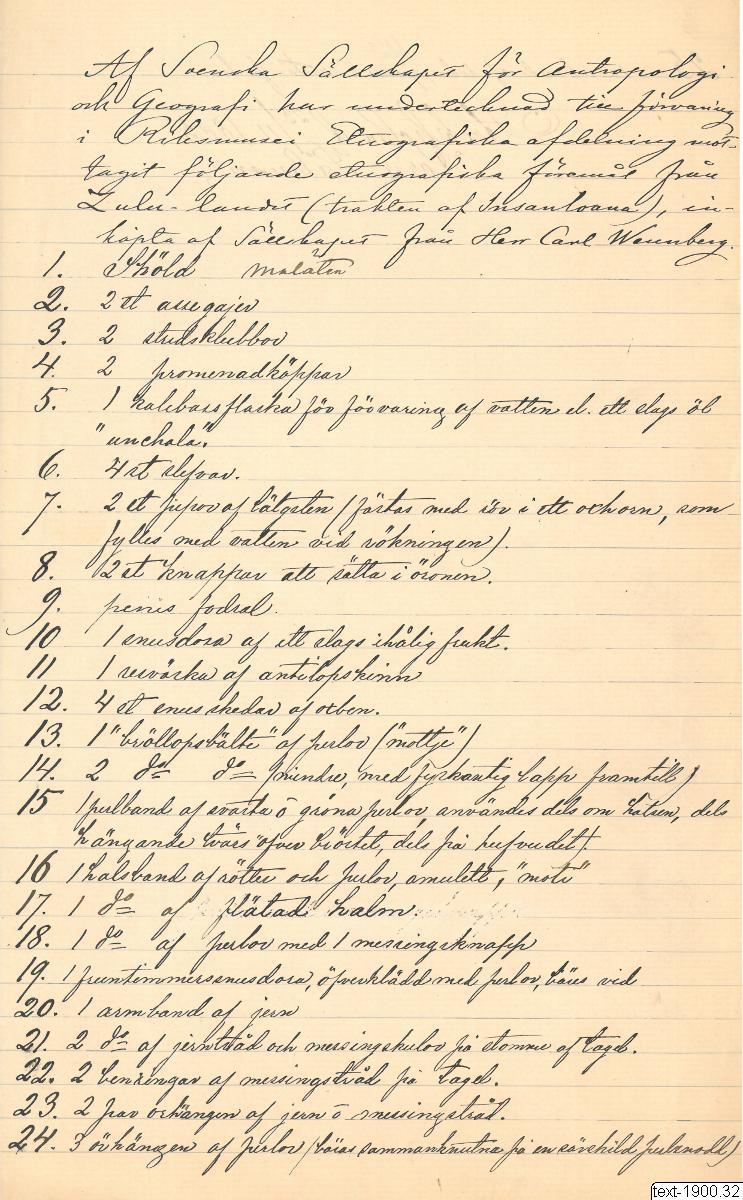 Af Svenska Sällskapet för Antropologi
och Geografi har undertecknad till förvaring
i Riksmusei Etnografiska afdelning mot-
tagit följande etnografiska föremål från
Zulu-landet (trakten af Insantoana), in-
köpta af Sällskapet från Herr Carl Wennberg.
1. Sköld
2. 2 st assegajer
3. 2 stridsklubbor
4. 2 promenadkäppar
5. 1 kalebassflaska för förvaring af vatten el. ett slags öl
"unchala".
6. 4 st slefvar.
7. 2 st pipor af tälgsten (fästas med rör i ett oxhorn, som
fylles med vatten vid rökningen).
8. 12 st knappar att sätta i öronen.
9. penis fodral.
10 1 snusdosa af ett slags ihålig frukt.
11 1 resväska af antilopskinn
12. 4 st snusskedar af oxben.
13. 1 "bröllopsbälte" af perlor ("mottje")
14. 2 do do (mindre, med fyrkantig lapp framtill)
15 1 perlband af svarta o gröna perlor, användes dels om halsen, dels
hängande tvärs öfver bröstet, dels på hufvudet).
16 1 halsband af rötter och perlor, amulett, "moti"
17. 1 do af flätad halm.
18. 1 do af perlor med 1 messingsknapp
19. 1 fruntimmerssnusdosa, öfverklädd med perlor, bäres vid
20. 1 armband af jern
21. 2 do af jerntråd och messingskulor på stomme af tagel.
22. 2 benringar af messingstråd på tagel.
23. 2 par örhängen af jern o messingstråd.
24. 3 örhängen af perlor (bäras sammanknutna på en särskild perlsnodd)
text-1900.32